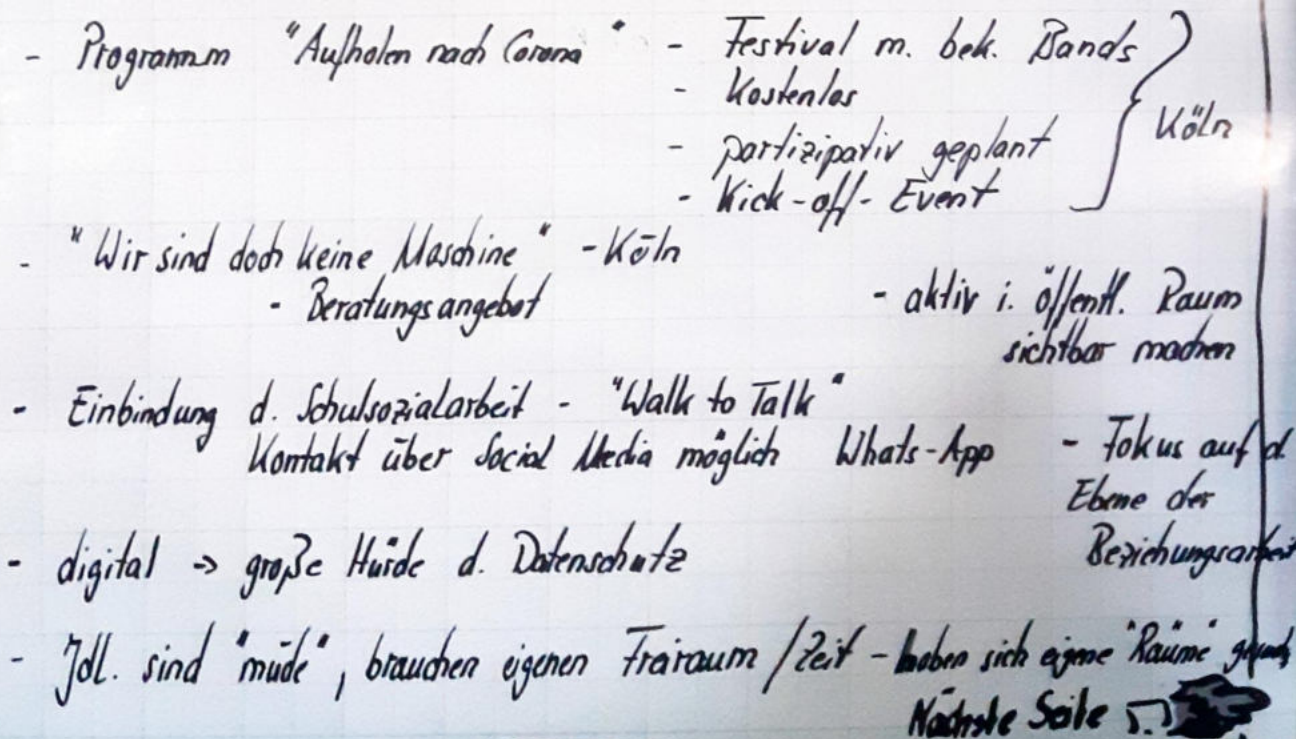 - Programm "Aufholen nach Corona" - Festival m. bek. Bands
- Kostenlos
- partizipativ geplant
- Kick-off-Event
Köln
- "Wir sind doch keine Maschine" - Köln
- Beratungsangebot
- aktiv i. öffentl. Raum
sichtbar machen
- Einbindung d. Schulsozialarbeit - "Walk to Talk"
Kontakt über Social Media möglich Whats-App
- Fokus auf d.
Ebene der
Beziehungsarbeit
- digital → große Hürde d. Datenschutz
- Jdl. sind "müde", brauchen eigenen Freiraum / Zeit - haben sich eigene "Räume"
Nächste Seite